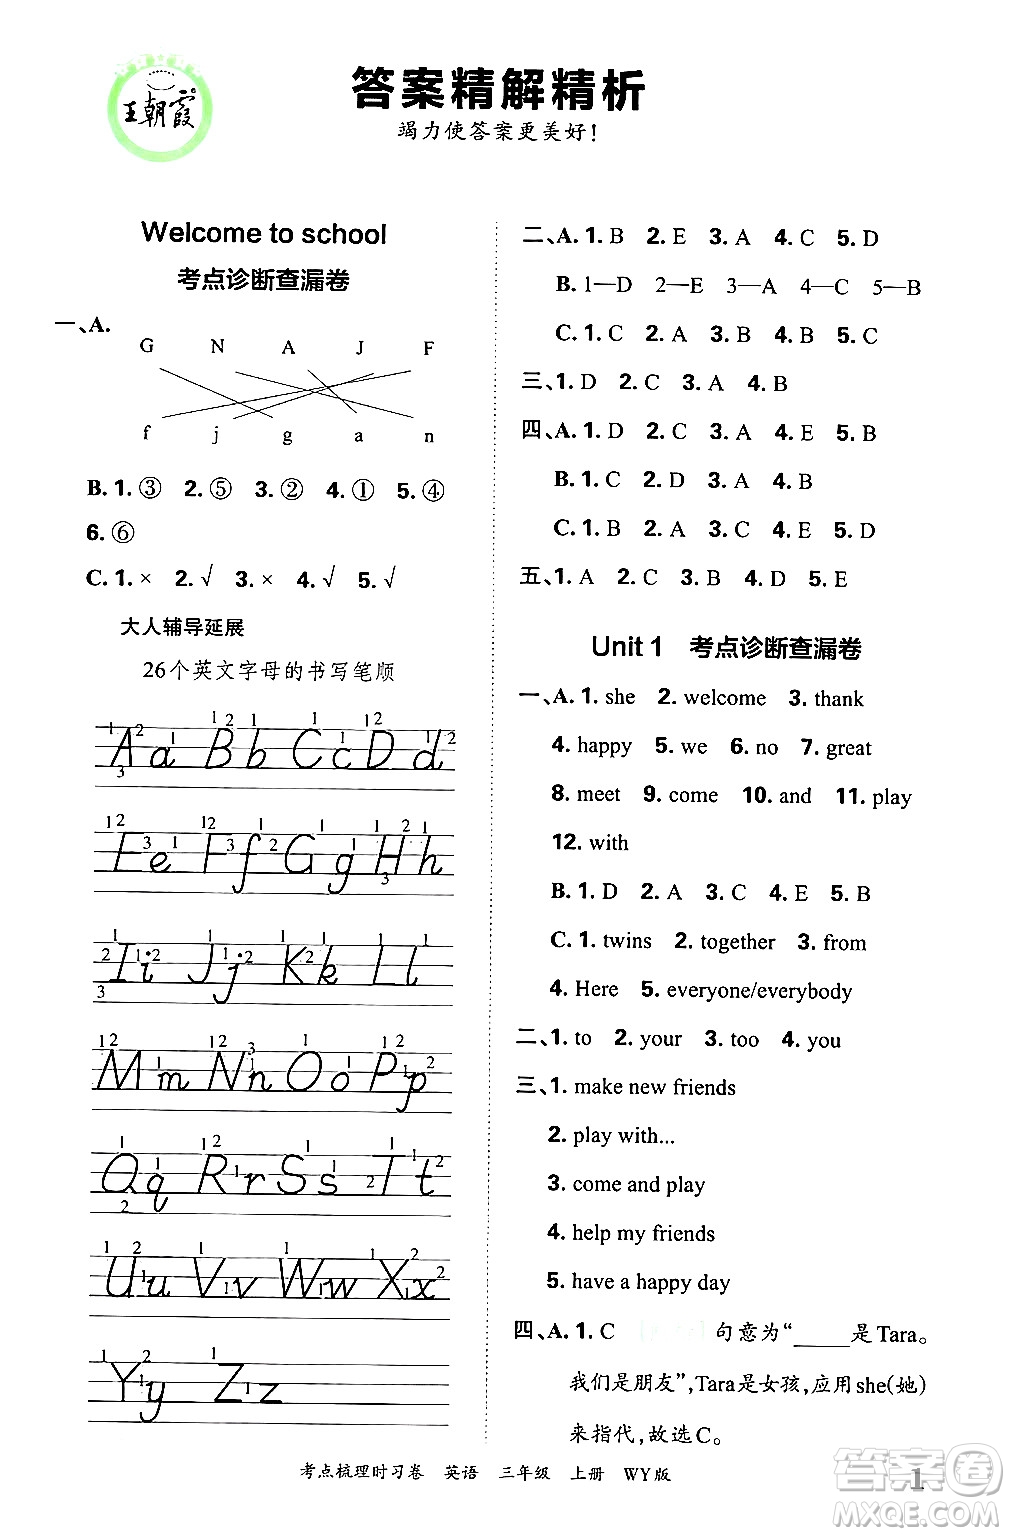 王朝霞
答案精解精析
竭力使答案更美好!
Welcome to school
考点诊断查漏卷
一、A.
G N A J F
f j g a n
B. 1. ③ 2. ⑤ 3. ② 4. ① 5. ④
6. ⑥
C. 1. × 2. √ 3. × 4. √ 5. √
大人辅导延展
26个英文字母的书写笔顺
Aa Bb Cc Dd
Ee Ff Gg Hh
Ii Jj Kk Ll
Mm Nn Oo Pp
Qq Rr Ss Tt
Uu Vv Ww Xx
Yy Zz
二、A. 1. B 2. E 3. A 4. C 5. D
B. 1—D 2—E 3—A 4—C 5—B
C. 1. B 2. A 3. D 4. A 5. C
三、1. D 2. C 3. A 4. B
四、A. 1. D 2. C 3. A 4. E 5. B
B. 1. C 2. D 3. A 4. B
C. 1. B 2. A 3. C 4. E 5. D
五、1. A 2. C 3. B 4. D 5. E
Unit 1 考点诊断查漏卷
一、A. 1. she 2. welcome 3. thank
4. happy 5. we 6. no 7. great
8. meet 9. come 10. and 11. play
12. with
B. 1. D 2. A 3. C 4. E 5. B
C. 1. twins 2. together 3. from
4. Here 5. everyone/everybody
二、1. to 2. your 3. too 4. you
三、1. make new friends
2. play with...
3. come and play
4. help my friends
5. have a happy day
四、A. 1. C 句意为“____是Tara。
我们是朋友”,Tara是女孩,应用she(她)
来指代,故选C。
考点梳理时习卷 英语 三年级 上册 WY版
1
答案圈
MXQE.COM